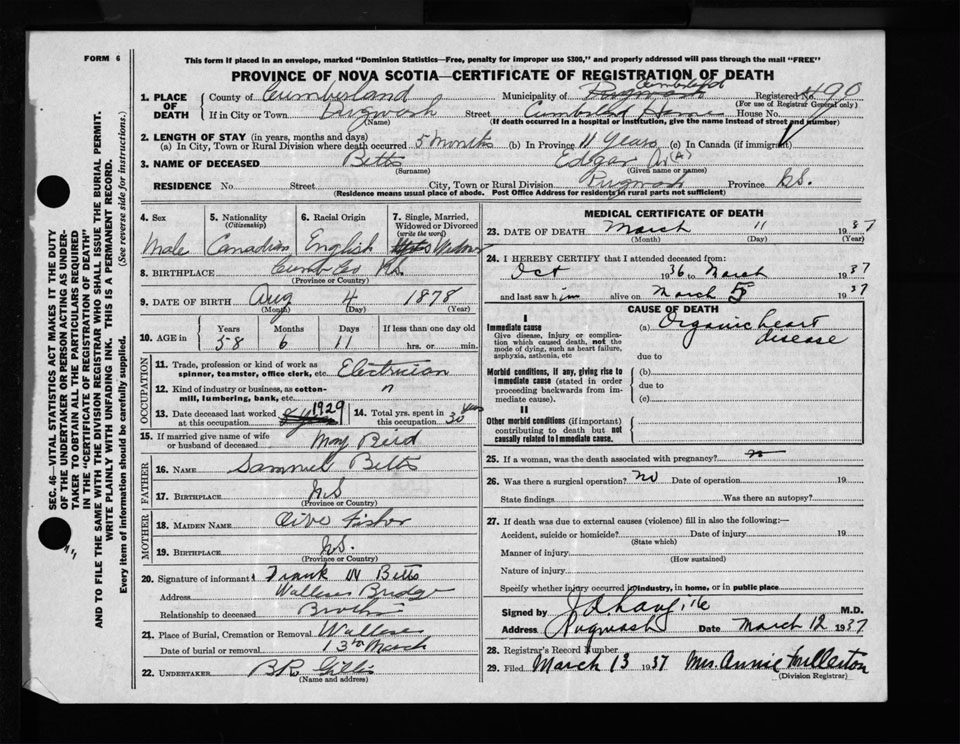 FORM 6
This form if placed in an envelope, marked "Dominion Statistics—Free, penalty for improper use $300," and properly addressed will pass through the mail "FREE"
PROVINCE OF NOVA SCOTIA—CERTIFICATE OF REGISTRATION OF DEATH
1. PLACE OF DEATH
County of Cumberland Municipality of Cumberland Registered No. 490
(For use of Registrar General only)
If in City or Town Pugwash Street Cumberland Home House No.
(Name) (If death occurred in a hospital or institution, give the name instead of street and number)
2. LENGTH OF STAY (in years, months and days)
(a) In City, Town or Rural Division where death occurred 5 months (b) In Province 11 Years (c) In Canada (if immigrant)
3. NAME OF DECEASED Betts Edgar (A)
(Surname) (Given name or names)
RESIDENCE No. Street City, Town or Rural Division Pugwash Province N.S.
(Residence means usual place of abode. Post Office Address for residents in rural parts not sufficient)
SEC. 46—VITAL STATISTICS ACT MAKES IT THE DUTY
OF THE UNDERTAKER OR PERSON ACTING AS UNDER-
TAKER TO OBTAIN ALL THE PARTICULARS REQUIRED
IN THE "CERTIFICATE OF REGISTRATION OF DEATH"
AND TO FILE THE SAME WITH THE DIVISION REGISTRAR WHO SHALL ISSUE THE BURIAL PERMIT.
WRITE PLAINLY WITH UNFADING INK. THIS IS A PERMANENT RECORD.
Every item of information should be carefully supplied. (See reverse side for instructions.)
4. Sex 5. Nationality (Citizenship) 6. Racial Origin 7. Single, Married, Widowed or Divorced (write the word)
Male Canadian English Widower
8. BIRTHPLACE Cumb Co N.S.
(Province or Country)
9. DATE OF BIRTH Aug 4 1878
(Month) (Day) (Year)
10. AGE in Years Months Days If less than one day old
58 6 11 hrs. or min.
OCCUPATION
11. Trade, profession or kind of work as spinner, teamster, office clerk, etc. Electrician
12. Kind of industry or business, as cotton-mill, lumbering, bank, etc. "
13. Date deceased last worked at this occupation 1929
14. Total yrs. spent in this occupation 30 years
15. If married give name of wife or husband of deceased May Beid
FATHER
16. NAME Sammuel Betts
17. BIRTHPLACE N.S
(Province or Country)
MOTHER
18. MAIDEN NAME Olive Fisher
19. BIRTHPLACE N.S.
(Province or Country)
20. Signature of informant Frank W Betts
Address Wallace Bridge
Relationship to deceased Brother
21. Place of Burial, Cremation or Removal Wallace
Date of burial or removal 13th March
22. UNDERTAKER Gillis
(Name and address)
MEDICAL CERTIFICATE OF DEATH
23. DATE OF DEATH March 11 1937
(Month) (Day) (Year)
24. I HEREBY CERTIFY that I attended deceased from:
Oct 1936 to March 1937
and last saw him alive on March 5 1937
CAUSE OF DEATH
I
Immediate cause
Give disease, injury or complication which caused death, not the mode of dying, such as heart failure, asphyxia, asthenia, etc
(a) Organic heart disease
due to
Morbid conditions, if any, giving rise to immediate cause (stated in order proceeding backwards from immediate cause).
(b)
due to
(c)
II
Other morbid conditions (if important) contributing to death but not causally related to immediate cause.
25. If a woman, was the death associated with pregnancy? no
26. Was there a surgical operation? no Date of operation 19
State findings Was there an autopsy?
27. If death was due to external causes (violence) fill in also the following:—
Accident, suicide or homicide? Date of injury 19
(State which)
Manner of injury
(How sustained)
Nature of injury
Specify whether injury occurred in industry, in home, or in public place
Signed by M.D.
Address Pugwash Date March 12 1937
28. Registrar's Record Number
29. Filed March 13 1937 Mrs. Annie Fullerton
(Division Registrar)